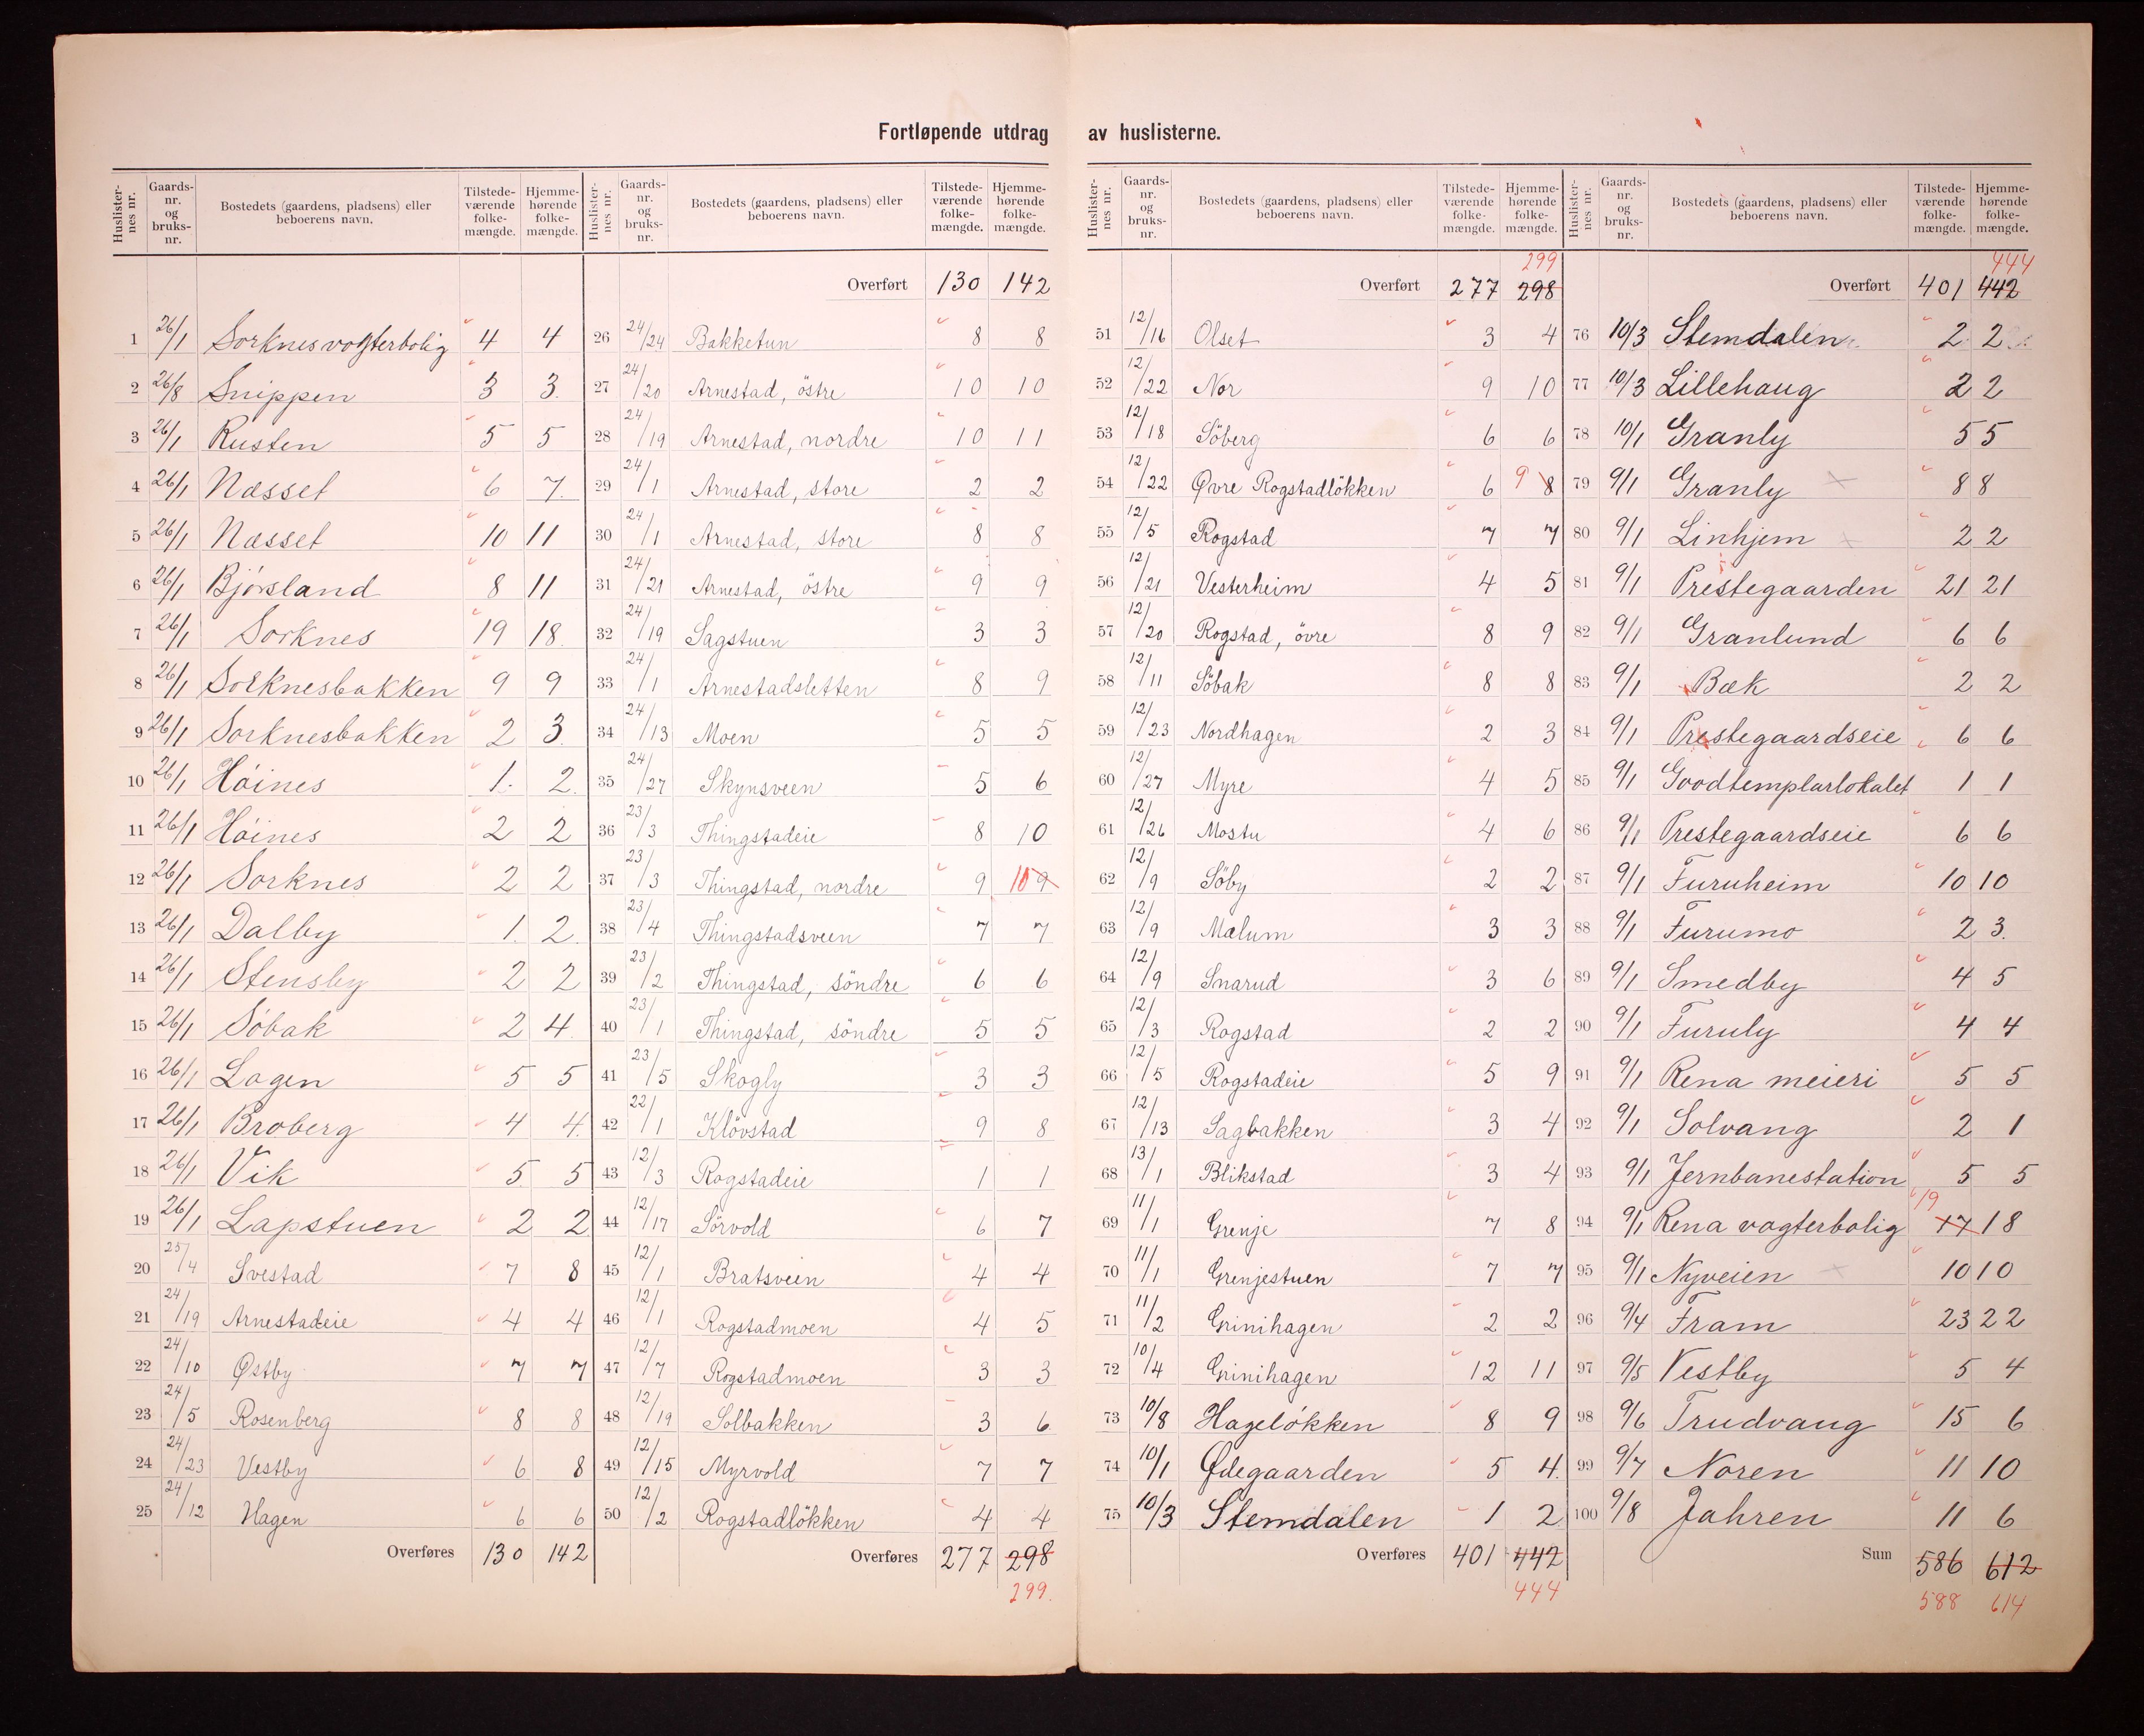 Fortløpende utdrag av huslisterne.
Huslisternes nr. | Gaards-nr. og bruks-nr. | Bostedets (gaardens, pladsens) eller beboerens navn. | Tilstedeværende folkemængde. | Hjemmehørende folkemængde.
1 26/1 Sorknes vogterbolig 4 4
2 26/8 Snippen 3 3.
3 26/1 Rusten 5 5
4 26/1 Næsset 6 7.
5 26/1 Næsset 10 11
6 26/1 Bjørsland 8 11
7 26/1 Sorknes 19 18.
8 26/1 Sorknesbakken 9 9
9 26/1 Sorknesbakken 2 3.
10 26/1 Høines 1. 2.
11 26/1 Høines 2 2
12 26/1 Sorknes 2 2
13 26/1 Dalby 1. 2.
14 26/1 Stensby 2 2
15 26/1 Søbak 2 4.
16 26/1 Lagen 5 5
17 26/1 Broberg 4 4.
18 26/1 Vik 5. 5
19 26/1 Lapstuen 2 2
20 25/4 Svestad 7 8
21 24/19 Arnestadeie 4 4
22 24/10 Østby 7 7
23 24/5 Rosenberg 8 8
24 24/23 Vestby 6 8
25 24/12 Hagen 6 6
Overføres 130 142
Huslisternes nr. | Gaards-nr. og bruks-nr. | Bostedets (gaardens, pladsens) eller beboerens navn. | Tilstedeværende folkemængde. | Hjemmehørende folkemængde.
Overført 130 142
26 24/24 Bakketun 8 8
27 24/20 Arnestad, östre 10 10
28 24/19 Arnestad, nordre 10 11
29 24/1 Arnestad, store 2 2
30 24/1 Arnestad, store 8 8
31 24/21 Arnestad, östre 9 9
32 24/19 Sagstuen 3 3
33 24/1 Arnestadsletten 8 9
34 24/13 Moen 5 5
35 24/27 Skynsveen 5 6
36 23/3 Thingstadeie 8 10
37 23/3 Thingstad, nordre 9 10 9
38 23/4 Thingstadsveen 7 7
39 23/2 Thingstad, söndre 6 6
40 23/1 Thingstad, söndre 5 5
41 23/5 Skogly 3 3
42 22/1 Klövstad 9 8
43 12/3 Rogstadeie 1 1
44 12/17 Sörvold 6 7
45 12/1 Bratsveen 4 4
46 12/1 Rogstadmoen 4 5
47 12/7 Rogstadmoen 3 3
48 12/19 Solbakken 3 6
49 12/15 Myrvold 7 7
50 12/2 Rogstadlökken 4 4
Overføres 277 298
299.
Huslisternes nr. | Gaards-nr. og bruks-nr. | Bostedets (gaardens, pladsens) eller beboerens navn. | Tilstedeværende folkemængde. | Hjemmehørende folkemængde.
299
Overført 277 298
51 12/16 Olset 3 4
52 12/22 Nor 9 10
53 12/18 Söberg 6 6
54 12/22 Øvre Rogstadlökken 6 9 8
55 12/5 Rogstad 7 7
56 12/21 Vesterheim 4 5
57 12/20 Rogstad, övre 8 9
58 12/11 Söbak 8 8
59 12/23 Nordhagen 2 3
60 12/27 Myre 4 5
61 12/26 Mostu 4 6
62 12/9 Söby 2 2
63 12/9 Mælum 3 3
64 12/9 Snarud 3 6
65 12/3 Rogstad 2 2
66 12/5 Rogstadeie 5 9
67 12/13 Sagbakken 3 4
68 13/1 Blikstad 3 4
69 11/1 Grenje 7 8
70 11/1 Grenjestuen 7 7
71 11/2 Grinihagen 2 2
72 10/4 Grinihagen 12 11
73 10/8 Hageløkken 8 9
74 10/1 Ødegaarden 5 4.
75 10/3 Stemdalen 1 2
Overføres 401 442
444
Huslisternes nr. | Gaards-nr. og bruks-nr. | Bostedets (gaardens, pladsens) eller beboerens navn. | Tilstedeværende folkemængde. | Hjemmehørende folkemængde.
444
Overført 401 442
76 10/3 Stemdalen 2 2
77 10/3 Lillehaug 2 2
78 10/1 Granly 5 5
79 9/1 Granly 8 8
80 9/1 Linhjem 2 2
81 9/1 Prestegaarden 21 21
82 9/1 Granlund 6 6
83 9/1 Bæk 2 2
84 9/1 Prestegaardseie 6 6
85 9/1 Goodtemplarlokalet 1 1
86 9/1 Prestegaardseie 6 6
87 9/1 Furuheim 10 10
88 9/1 Furumo 2 3.
89 9/1 Smedby 4 5
90 9/1 Furuly 4 4
91 9/1 Rena meieri 5 5
92 9/1 Solvang 2 1
93 9/1 Jernbanestation 5 5
94 9/1 Rena vogterbolig 19 17 18
95 9/1 Nyveien 10 10
96 9/4 Fram 23 22
97 9/5 Vestby 5 4
98 9/6 Trudvang 15 6
99 9/7 Noren 11 10
100 9/8 Jahren 11 6
Sum 586 612
588 614